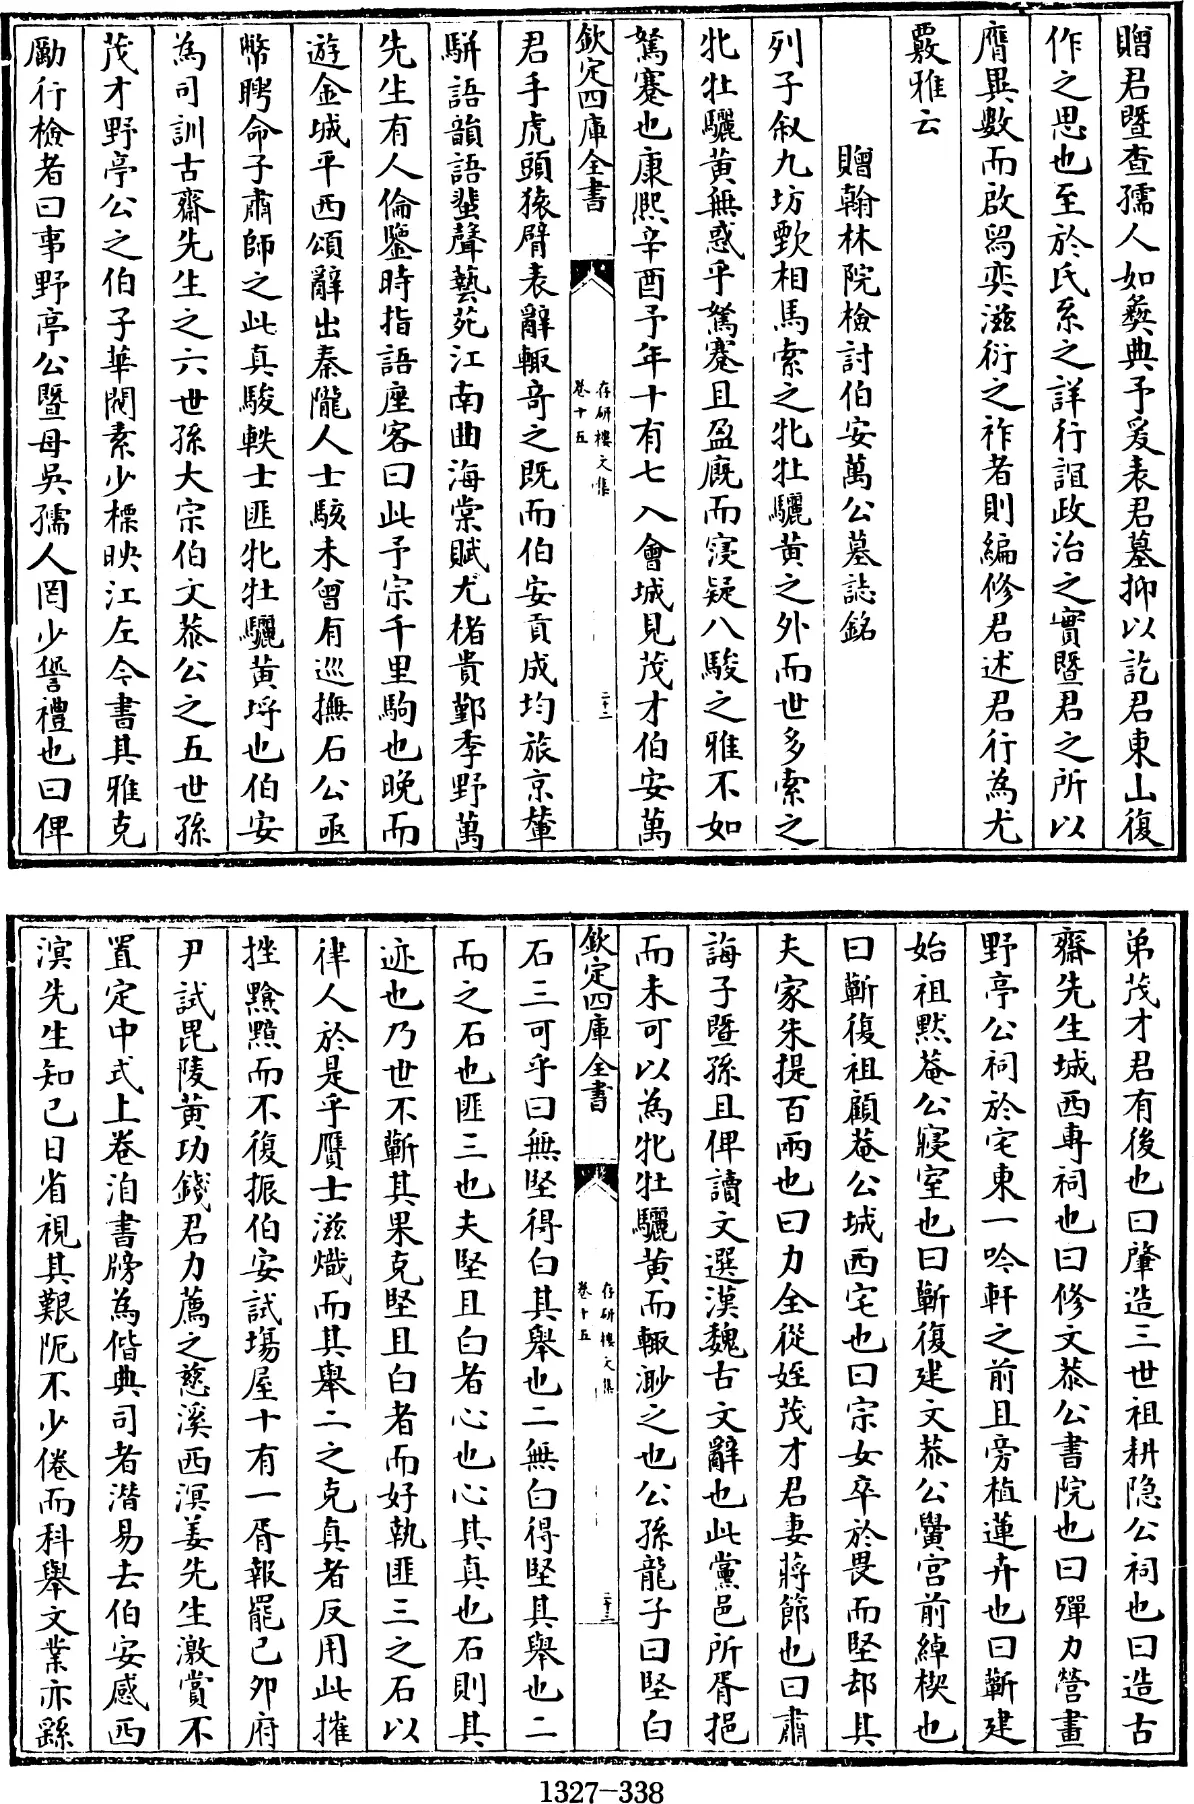 贈君暨查孺人如彜典予爰表君墓抑以訖君東山復
作之思也至於氏系之詳行誼政治之實暨君之所以
膺異數而啟舄奕滋衍之祚者則編修君述君行為尤
覈雅云
贈翰林院檢討伯安萬公墓誌銘
列子叙九坊甄相馬索之牝牡驪黄之外而世多索之
牝牡驪黄無惑乎駑蹇且盈廐而寖疑八駿之雅不如
駑蹇也康熙辛酉予年十有七入會城見茂才伯安萬
欽定四庫全書
存研樓文集
卷十五
二十二
君手虎頭猿臂表辭輙竒之既而伯安貢成均旅京輦
駢語韻語蜚聲藝苑江南曲海棠賦尤楮貴鄞季野萬
先生有人倫鑒時指語座客曰此予宗千里駒也晩而
遊金城平西頌辭出秦隴人士駭未曾有巡撫石公亟
幣聘命子肅師之此真駿軼士匪牝牡驪黄埒也伯安
為司訓古齋先生之六世孫大宗伯文恭公之五世孫
茂才野亭公之伯子華閥素少標映江左今書其雅克
勵行檢者曰事野亭公暨母吳孺人罔少諐禮也曰俾
弟茂才君有後也曰肇造三世祖耕隐公祠也曰造古
齋先生城西専祠也曰修文恭公書院也曰殫力營畫
野亭公祠於宅東一吟軒之前且旁植蓮卉也曰蘄建
始祖默菴公寢室也曰蘄復建文恭公黌宫前綽楔也
曰蘄復祖顧菴公城西宅也曰宗女卒於畏而堅却其
夫家朱提百兩也曰力全從姪茂才君妻蔣節也曰肅
誨子暨孫且俾讀文選漢魏古文辭也此黨邑所胥挹
而未可以為牝牡驪黄而輙渺之也公孫龍子曰堅白
欽定四庫全書
存研樓文集
卷十五
二十三
石三可乎曰無堅得白其舉也二無白得堅其舉也二
而之石也匪三也夫堅且白者心也心其真也石則其
迹也乃世不蘄其果克堅且白者而好執匪三之石以
律人於是乎贋士滋熾而其舉二之克真者反用此摧
挫黲黯而不復振伯安試場屋十有一胥報罷己卯府
尹試毘陵黄功錢君力薦之慈溪西溟姜先生激賞不
置定中式上卷洎書牓為偕典司者潛易去伯安感西
溟先生知己日省視其艱阨不少倦而科舉文業亦繇
1327-338